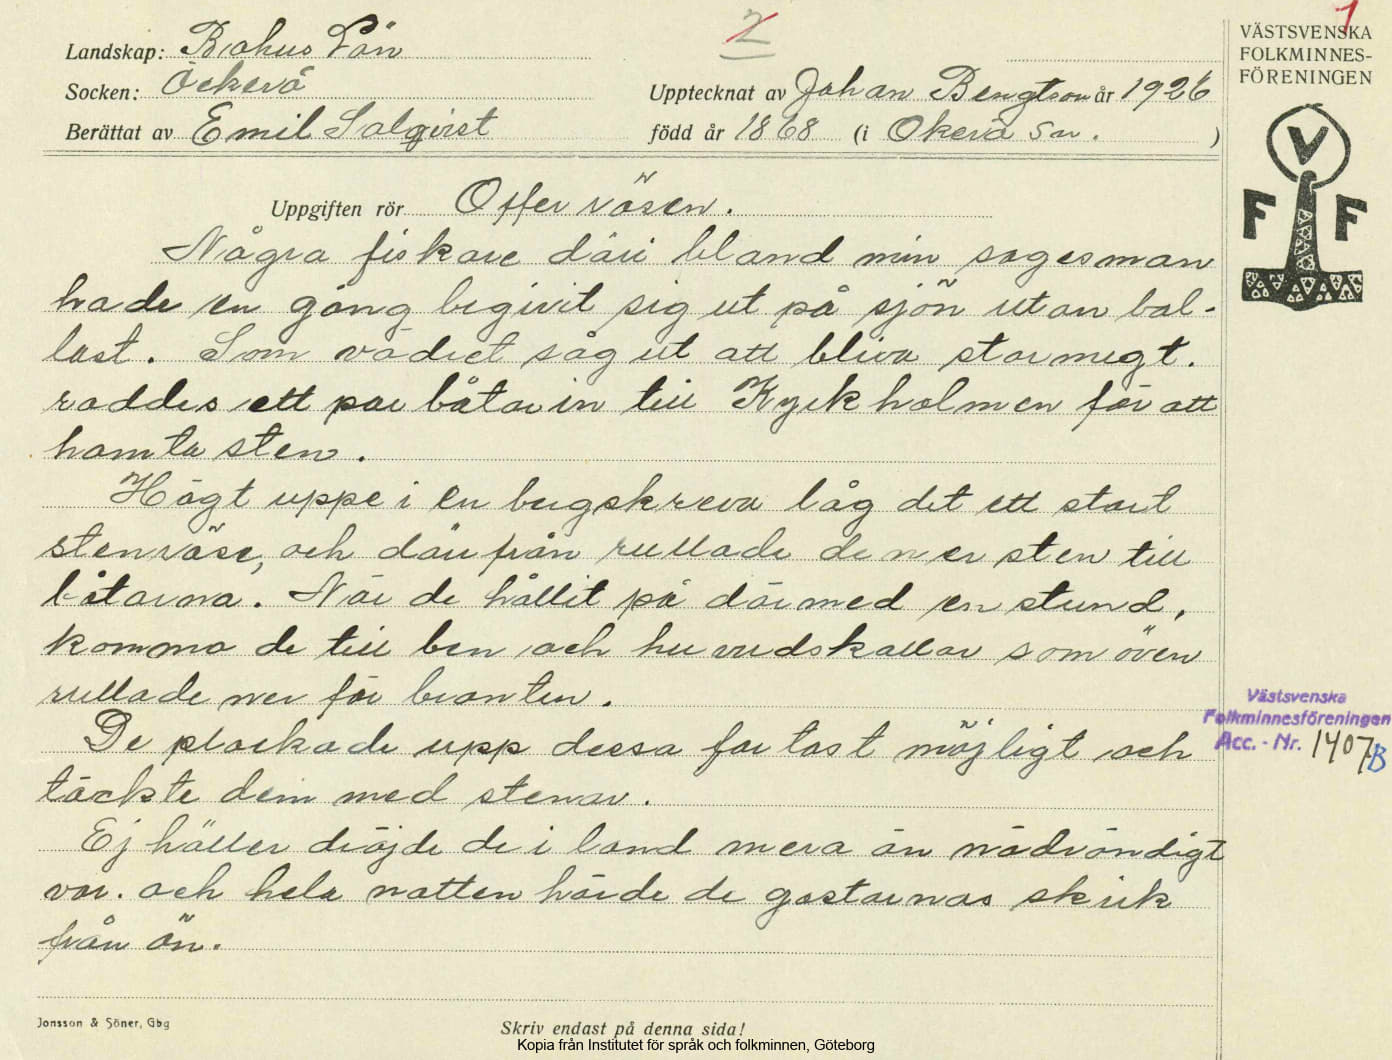 Landskap: Bohus Län
Socken: Öckerö
Berättat av Emil Salqvist
2
Upptecknat av Johan Bengtson år 1926
född år 1868 (i Ökerö sn. )
1
VÄSTSVENSKA
FOLKMINNES-
FÖRENINGEN
V
F F
Uppgiften rör Offer rösen.
Några fiskare däri bland min sagesman
hade en gång begivit sig ut på sjön utan bal-
last. Som vädret såg ut att bliva stormigt.
roddes ett par båtar in till Kyrkholmen för att
hämta sten.
Högt uppe i en bergskreva låg det ett stort
stenröse, och därifrån rullade de ner sten till
båtarna. När de hållit på därmed en stund,
komma de till ben och huvudskallar som även
rullade ner för branten.
De plockade upp dessa fortast möjligt och
täckte dem med stenar.
Ej häller dröjde de i land mera än nödvändigt
var. och hela natten hörde de gastarnas skrik
från ön.
Västsvenska
Folkminnesföreningen
Acc. - Nr. 1407 B
Jonsson & Söner, Gbg
Skriv endast på denna sida!
Kopia från Institutet för språk och folkminnen, Göteborg